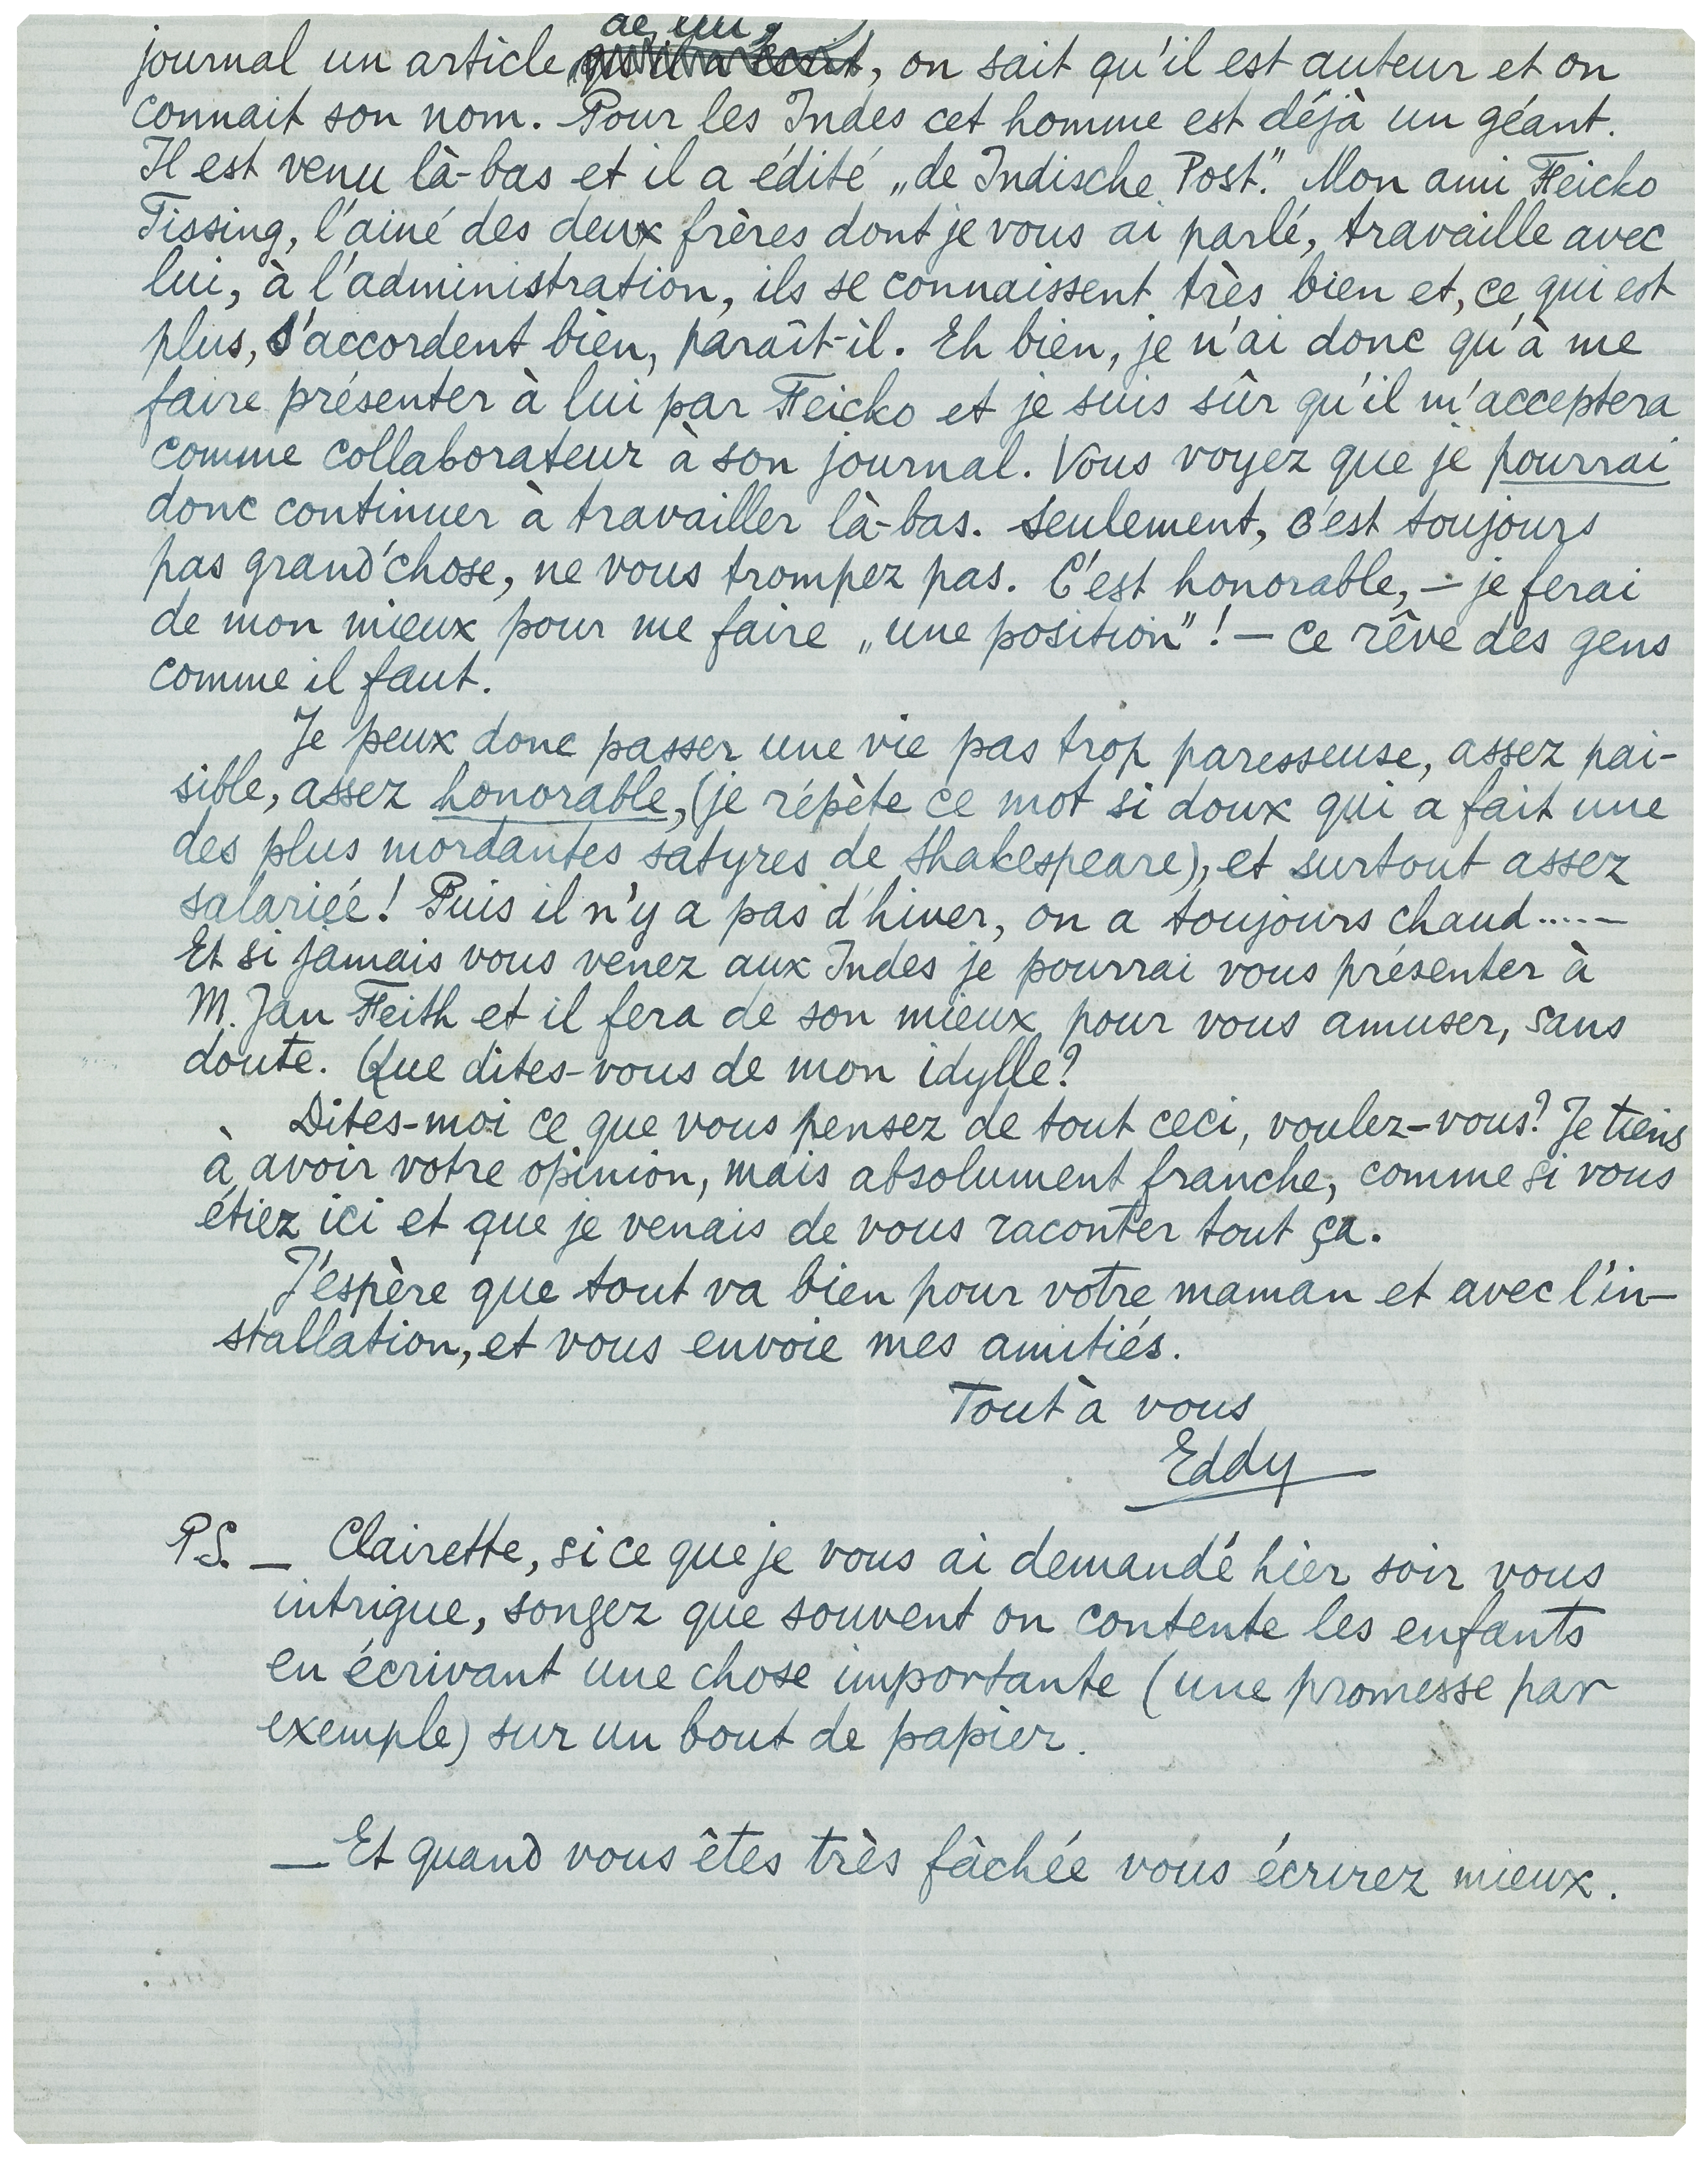 journal un article de lui, qu'il a écrit, on sait qu'il est auteur et on
connait son nom. Pour les Indes cet homme est déjà un géant.
Il est venu là-bas et il a édité „de Indische Post”. Mon ami Feicko
Tissing, l'ainé des deux frères dont je vous ai parlé, travaille avec
lui, à l'administration, ils se connaissent très bien et, ce qui est
plus, s'accordent bien, paraît-il. Eh bien, je n'ai donc qu'à me
faire présenter à lui par Feicko et je suis sûr qu'il m'acceptera
comme collaborateur à son journal. Vous voyez que je pourrai
donc continuer à travailler là-bas. Seulement, c'est toujours
pas grand'chose, ne vous trompez pas. C'est honorable, — je ferai
de mon mieux pour me faire „une position”! — ce rêve des gens
comme il faut.
Je peux donc passer une vie pas trop paresseuse, assez pai-
sible, assez honorable, (je répète ce mot si doux qui a fait une
des plus mordantes satyres de Shakespeare), et surtout assez
salariée! Puis il n'y a pas d'hiver, on a toujours chaud.....—
Et si jamais vous venez aux Indes je pourrai vous présenter à
M. Jan Feith et il fera de son mieux pour vous amuser, sans
doute. Que dites-vous de mon idylle?
Dites-moi ce que vous pensez de tout ceci, voulez-vous? Je tiens
à avoir votre opinion, mais absolument franche, comme si vous
étiez ici et que je venais de vous raconter tout ça.
J'espère que tout va bien pour votre maman et avec l'in-
stallation, et vous envoie mes amitiés.
Tout à vous
Eddy
P.S. — Clairette, si ce que je vous ai demandé hier soir vous
intrigue, songez que souvent on contente les enfants
en écrivant une chose importante (une promesse par
exemple) sur un bout de papier.
— Et quand vous êtes très fâchée vous écrirez mieux.